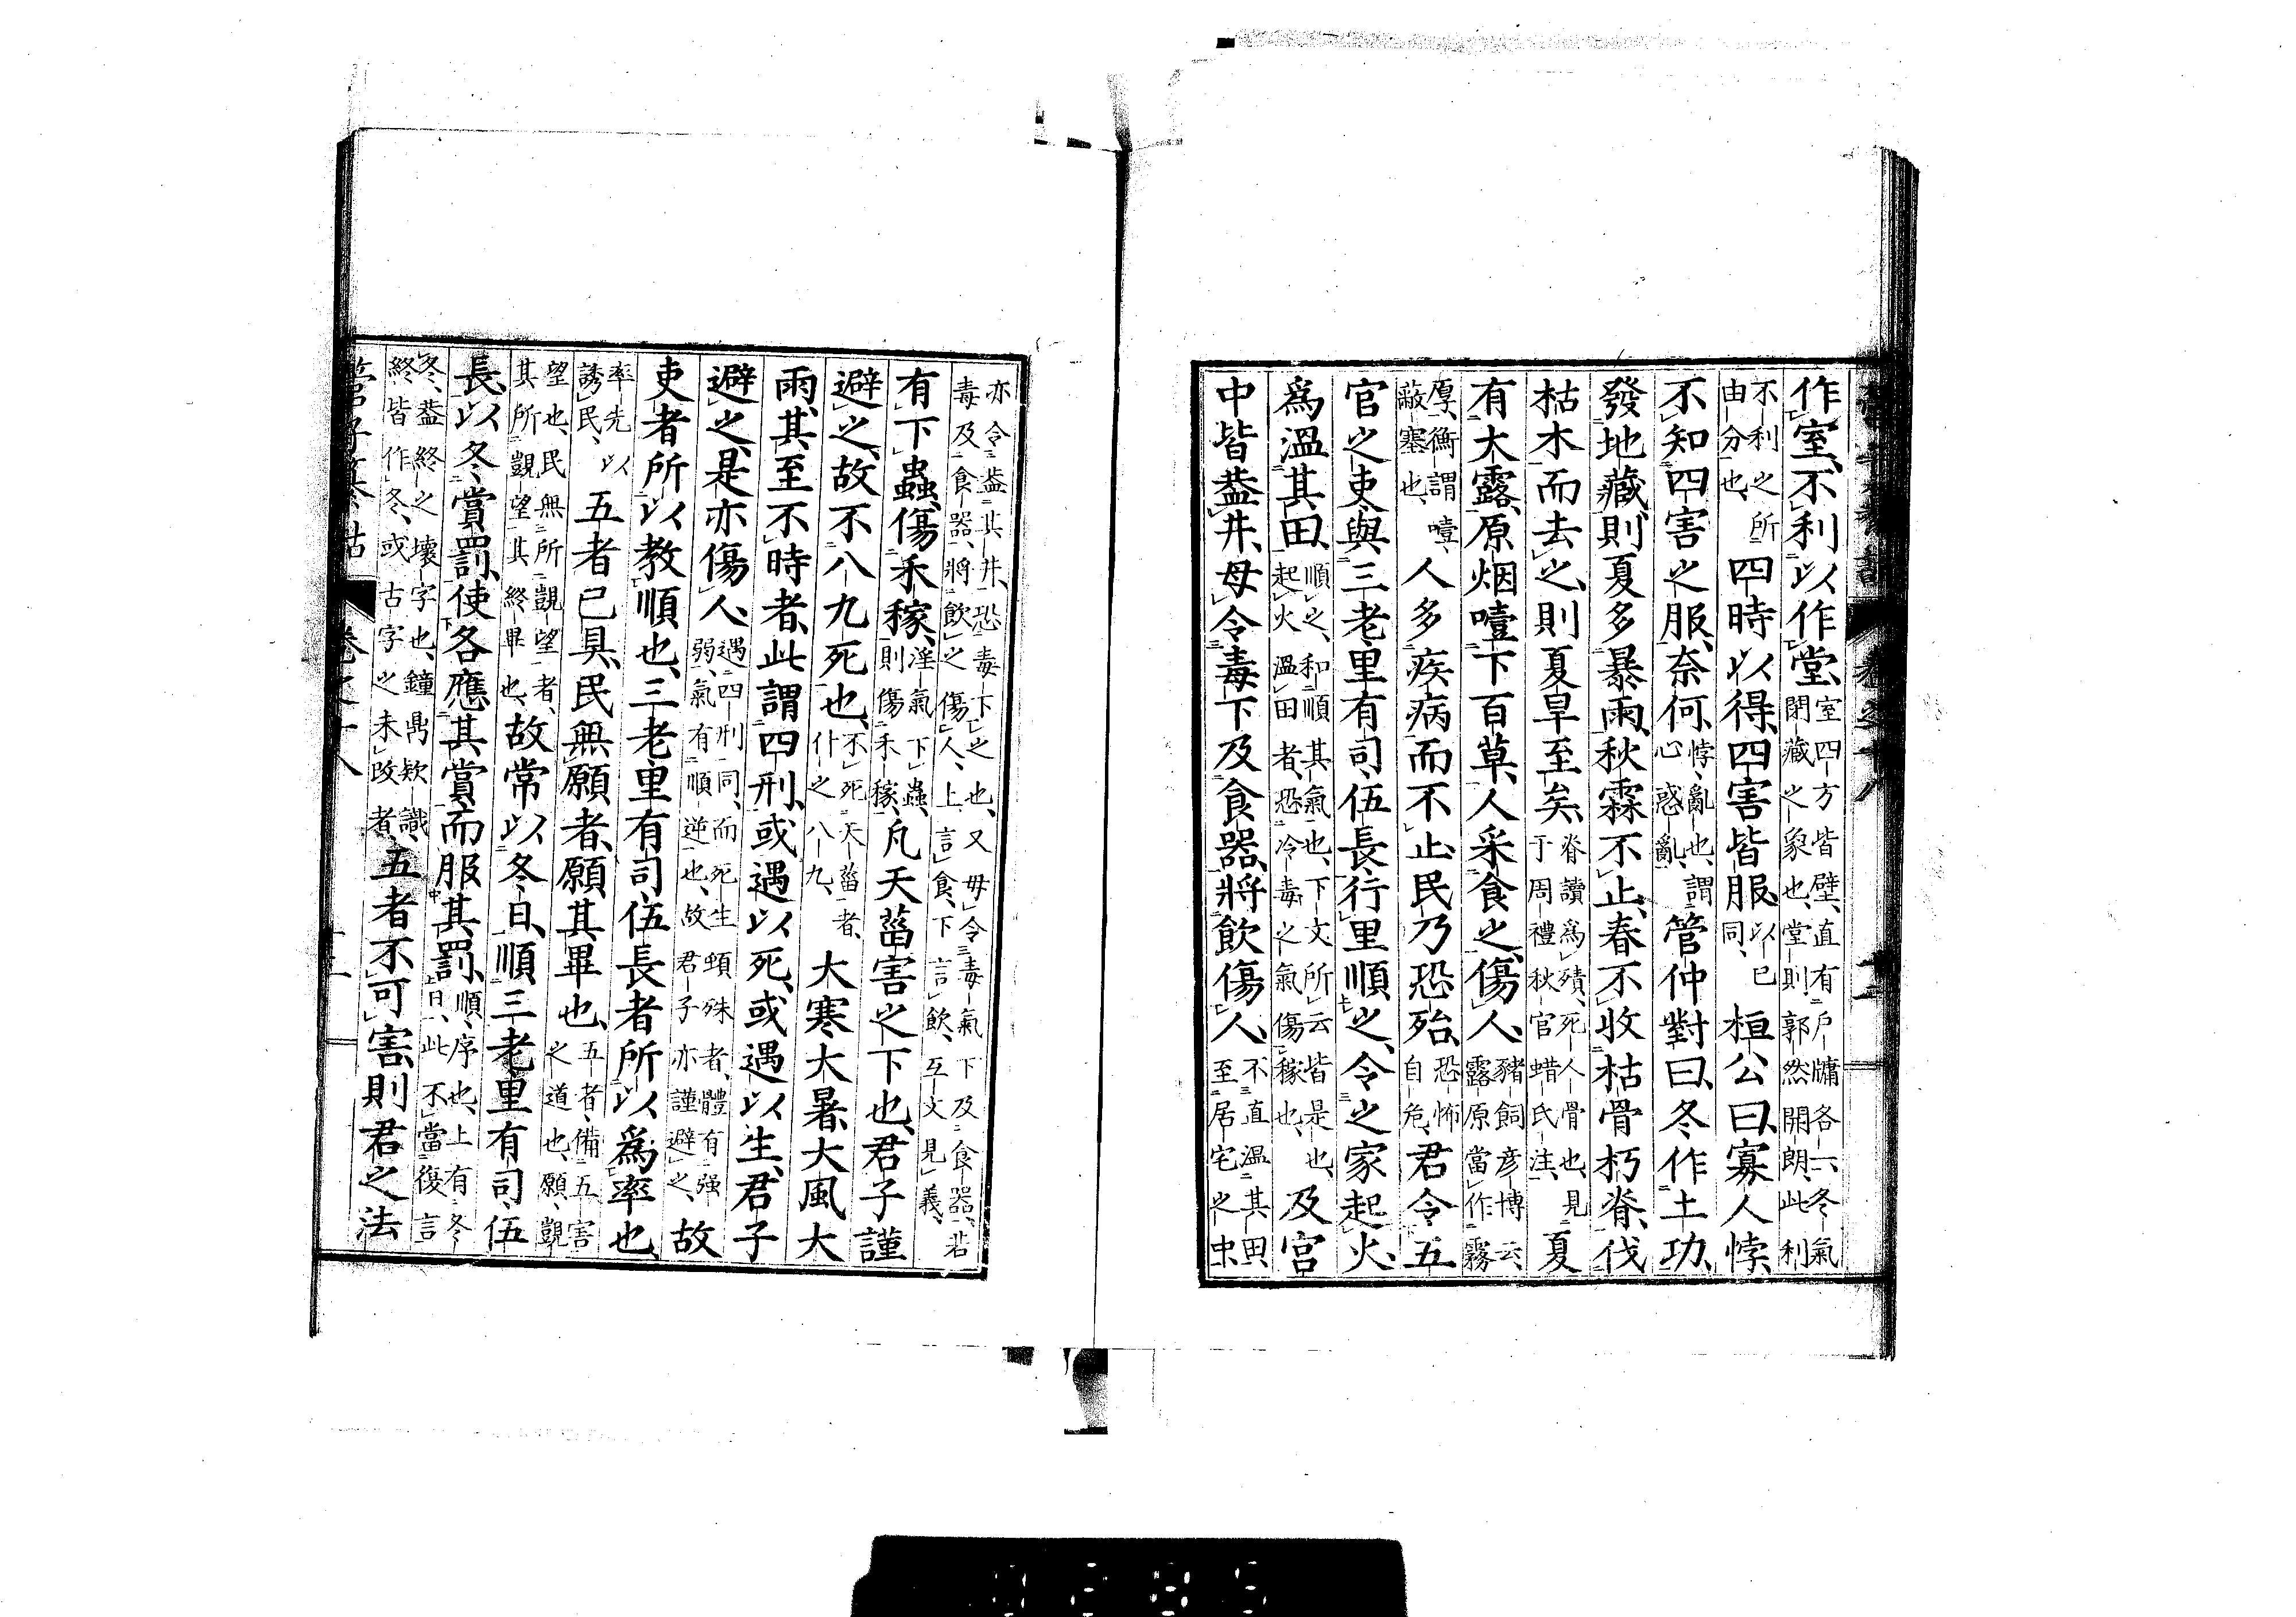 管子纂詁 卷之十八
作室、不利以作堂、室四方皆壁、直有戸牖各一、冬氣閉藏之象也、堂則郭然開朗、此利
不利之所由分也、四時以得、四害皆服、以已同、桓公曰、寡人悖、
不知四害之服、奈何、悖、亂也、謂心惑亂、管仲對曰、冬作土功、
發地藏、則夏多暴雨、秋霖不止、春不收枯骨朽脊、伐
枯木而去之、則夏旱至矣、脊讀爲殨、死人骨也、見于周禮秋官蜡氏注、夏
有大露、原烟噎下百草、人采食之、傷人、豬飼彦博云、露原當作霧
厚、衡謂噎、蔽塞也、人多疾病而不止、民乃恐殆、恐怖自危、君令五
官之吏、與三老里有司、伍長、行里順之、令之家起火、
爲溫其田、順之、和順其氣也、下文所云皆是也、起火溫田者、恐冷毒之氣傷稼也、及宮
中皆葢井、毋令毒下及食器、將飮傷人、不直溫其田、至居宅之中、
亦令葢其井、恐毒下之也、又毋令毒氣下及食器、若毒及食器、將飮之傷人、上言食、下言飮、互文見義、
有下蟲傷禾稼、淫氣下蟲、則傷禾稼、凡天菑害之下也、君子謹
避之、故不八九死也、不死天菑者、什之八九、大寒大暑、大風大
雨、其至不時者、此謂四刑、或遇以死、或遇以生、君子
避之、是亦傷人、遇四刑同、而死生頓殊者、體有强弱、氣有順逆也、故君子亦謹避之、故
吏者所以教順也、三老里有司、伍長者、所以爲率也、
率先以誘民、五者已具、民無願者、願其畢也、五者、備五害之道也、願、覬
望也、民無所覬望者、其所覬望其終畢也、故常以冬日、順三老里有司、伍
長、以冬賞罰、使各應其賞、而服其罰、順、序也、上有冬日、此不當復言
冬、葢終之壞字也、鐘鼎欵識、終皆作冬、或古字之未改者、五者不可害、則君之法
管子纂詁 卷之十八